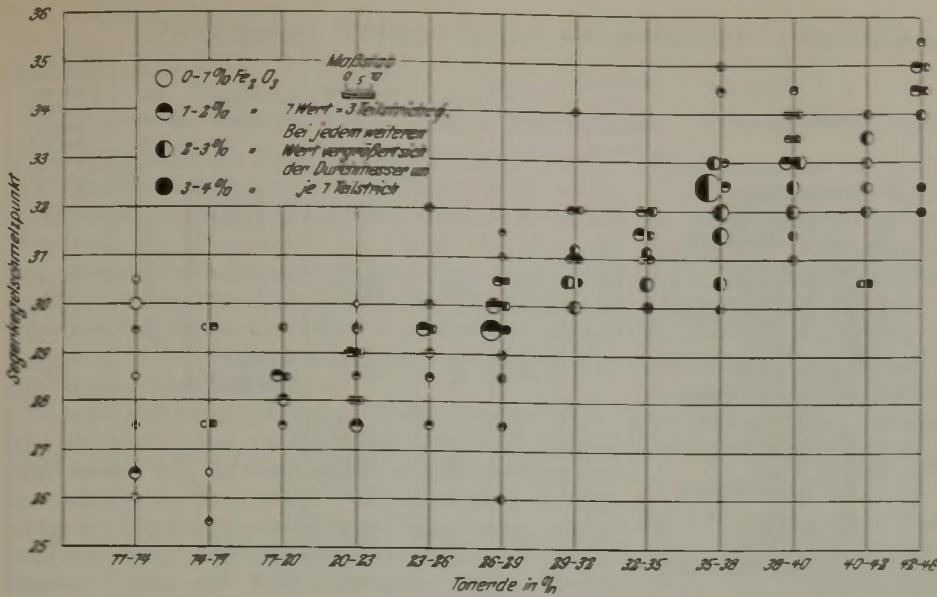 36
35
34
33
32
31
30
29
28
27
26
25
Segerkegelschmelzpunkt
0-1% Fe₂O₃
1-2% "
2-3% "
3-4% "
Maßstab
0 5 10
1 Wert = 3 Teilstriche ∅.
Bei jedem weiteren
Wert vergrößert sich
der Durchmesser um
je 1 Teilstrich
11-14 14-17 17-20 20-23 23-26 26-29 29-32 32-35 35-38 38-40 40-42 42-46
Tonerde in %